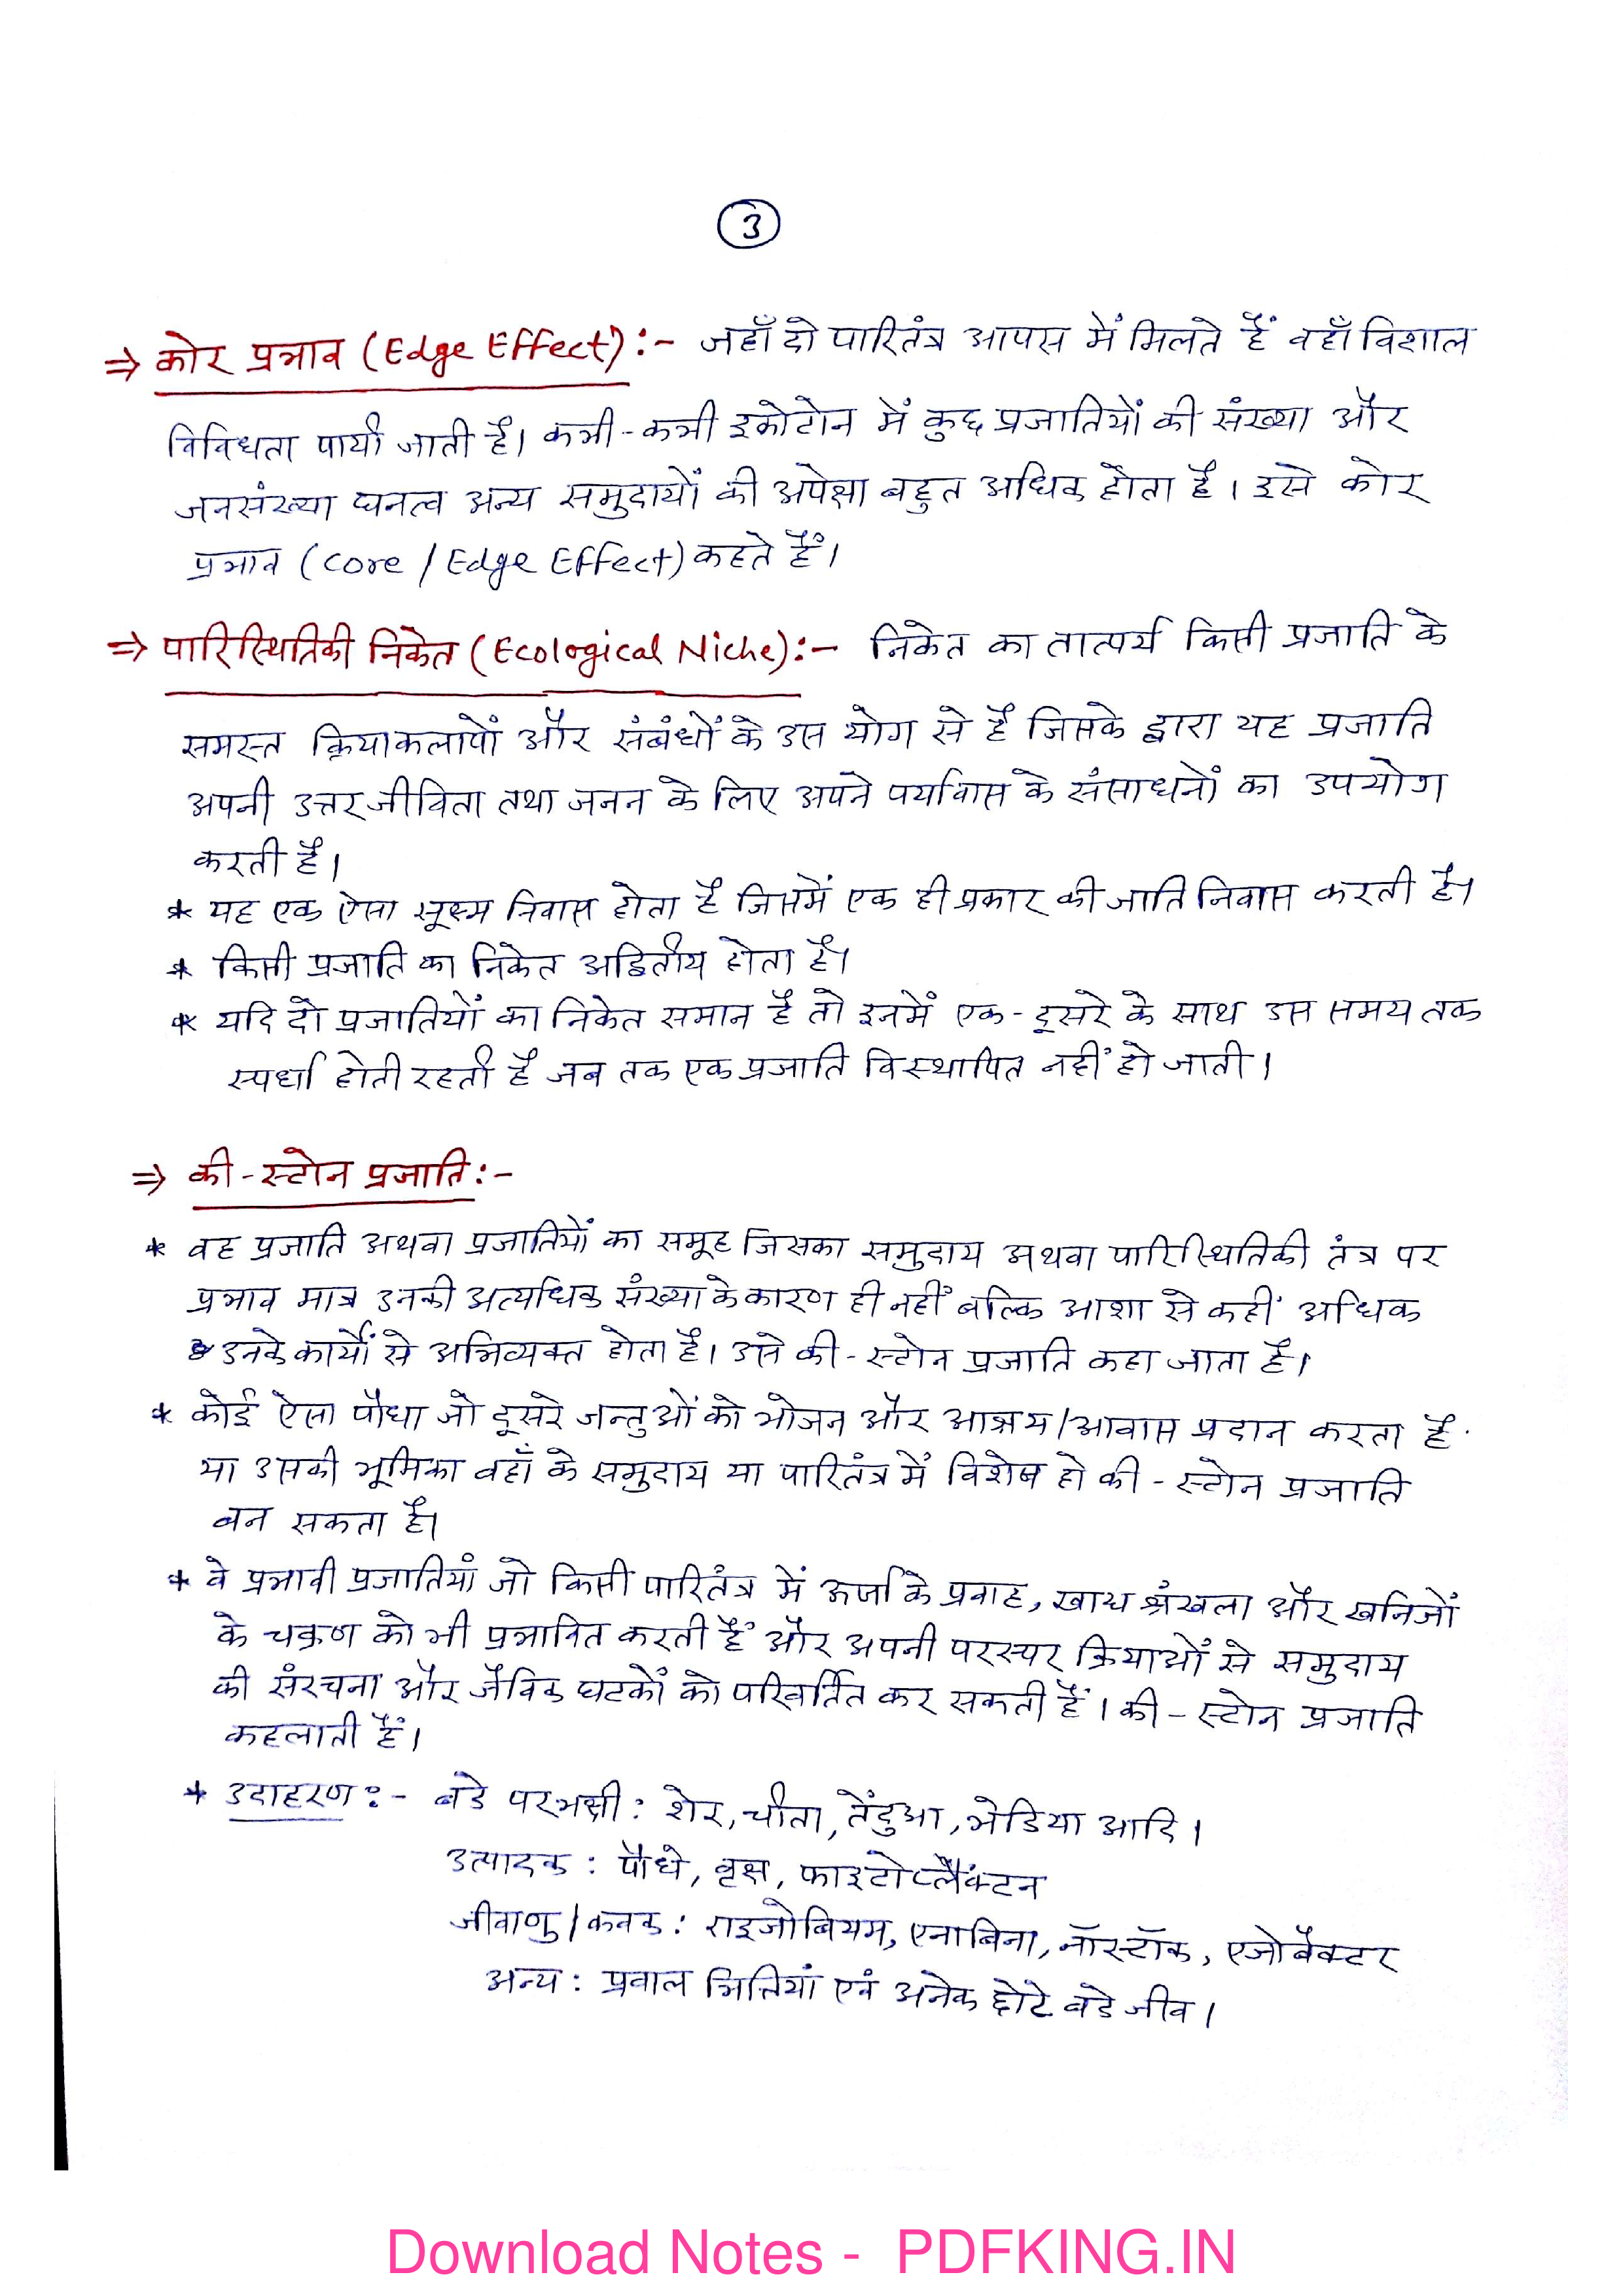 3
⇒ कोर प्रभाव (Edge Effect) :- जहाँ दो पारितंत्र आपस में मिलते हैं वहाँ विशाल
विविधता पायी जाती है। कभी-कभी इकोटोन में कुछ प्रजातियों की संख्या और
जनसंख्या घनत्व अन्य समुदायों की अपेक्षा बहुत अधिक होता है। इसे कोर
प्रभाव (Core / Edge Effect) कहते हैं।
⇒ पारिस्थितिकी निकेत (Ecological Niche) :- निकेत का तात्पर्य किसी प्रजाति के
समस्त क्रियाकलापों और संबंधों के उस योग से है जिसके द्वारा यह प्रजाति
अपनी उत्तरजीविता तथा जनन के लिए अपने पर्यावास के संसाधनों का उपयोग
करती है।
* यह एक ऐसा सूक्ष्म निवास होता है जिसमें एक ही प्रकार की जाति निवास करती है।
* किसी प्रजाति का निकेत अद्वितीय होता है।
* यदि दो प्रजातियों का निकेत समान है तो इनमें एक-दूसरे के साथ उस समय तक
स्पर्धा होती रहती है जब तक एक प्रजाति विस्थापित नहीं हो जाती।
⇒ की-स्टोन प्रजाति :-
* वह प्रजाति अथवा प्रजातियों का समूह जिसका समुदाय अथवा पारिस्थितिकी तंत्र पर
प्रभाव मात्र उनकी अत्यधिक संख्या के कारण ही नहीं बल्कि आशा से कहीं अधिक
उनके कार्यों से अभिव्यक्त होता है। उसे की-स्टोन प्रजाति कहा जाता है।
* कोई ऐसा पौधा जो दूसरे जन्तुओं को भोजन और आश्रय/आवास प्रदान करता है
या उसकी भूमिका वहाँ के समुदाय या पारितंत्र में विशेष हो की-स्टोन प्रजाति
बन सकता है।
* वे प्रभावी प्रजातियां जो किसी पारितंत्र में ऊर्जा के प्रवाह, खाद्य श्रंखला और खनिजों
के चक्रण को भी प्रभावित करती हैं और अपनी परस्पर क्रियाओं से समुदाय
की संरचना और जैविक घटकों को परिवर्तित कर सकती हैं। की-स्टोन प्रजाति
कहलाती हैं।
* उदाहरण :- बडे परभक्षी : शेर, चीता, तेंदुआ, भेडिया आदि।
उत्पादक : पौधे, वृक्ष, फाइटोप्लैंक्टन
जीवाणु/कवक : राइजोबियम, एनाबिना, नॉस्टॉक, एजोबैक्टर
अन्य : प्रवाल भित्तियां एवं अनेक छोटे बडे जीव।
Download Notes - PDFKING.IN